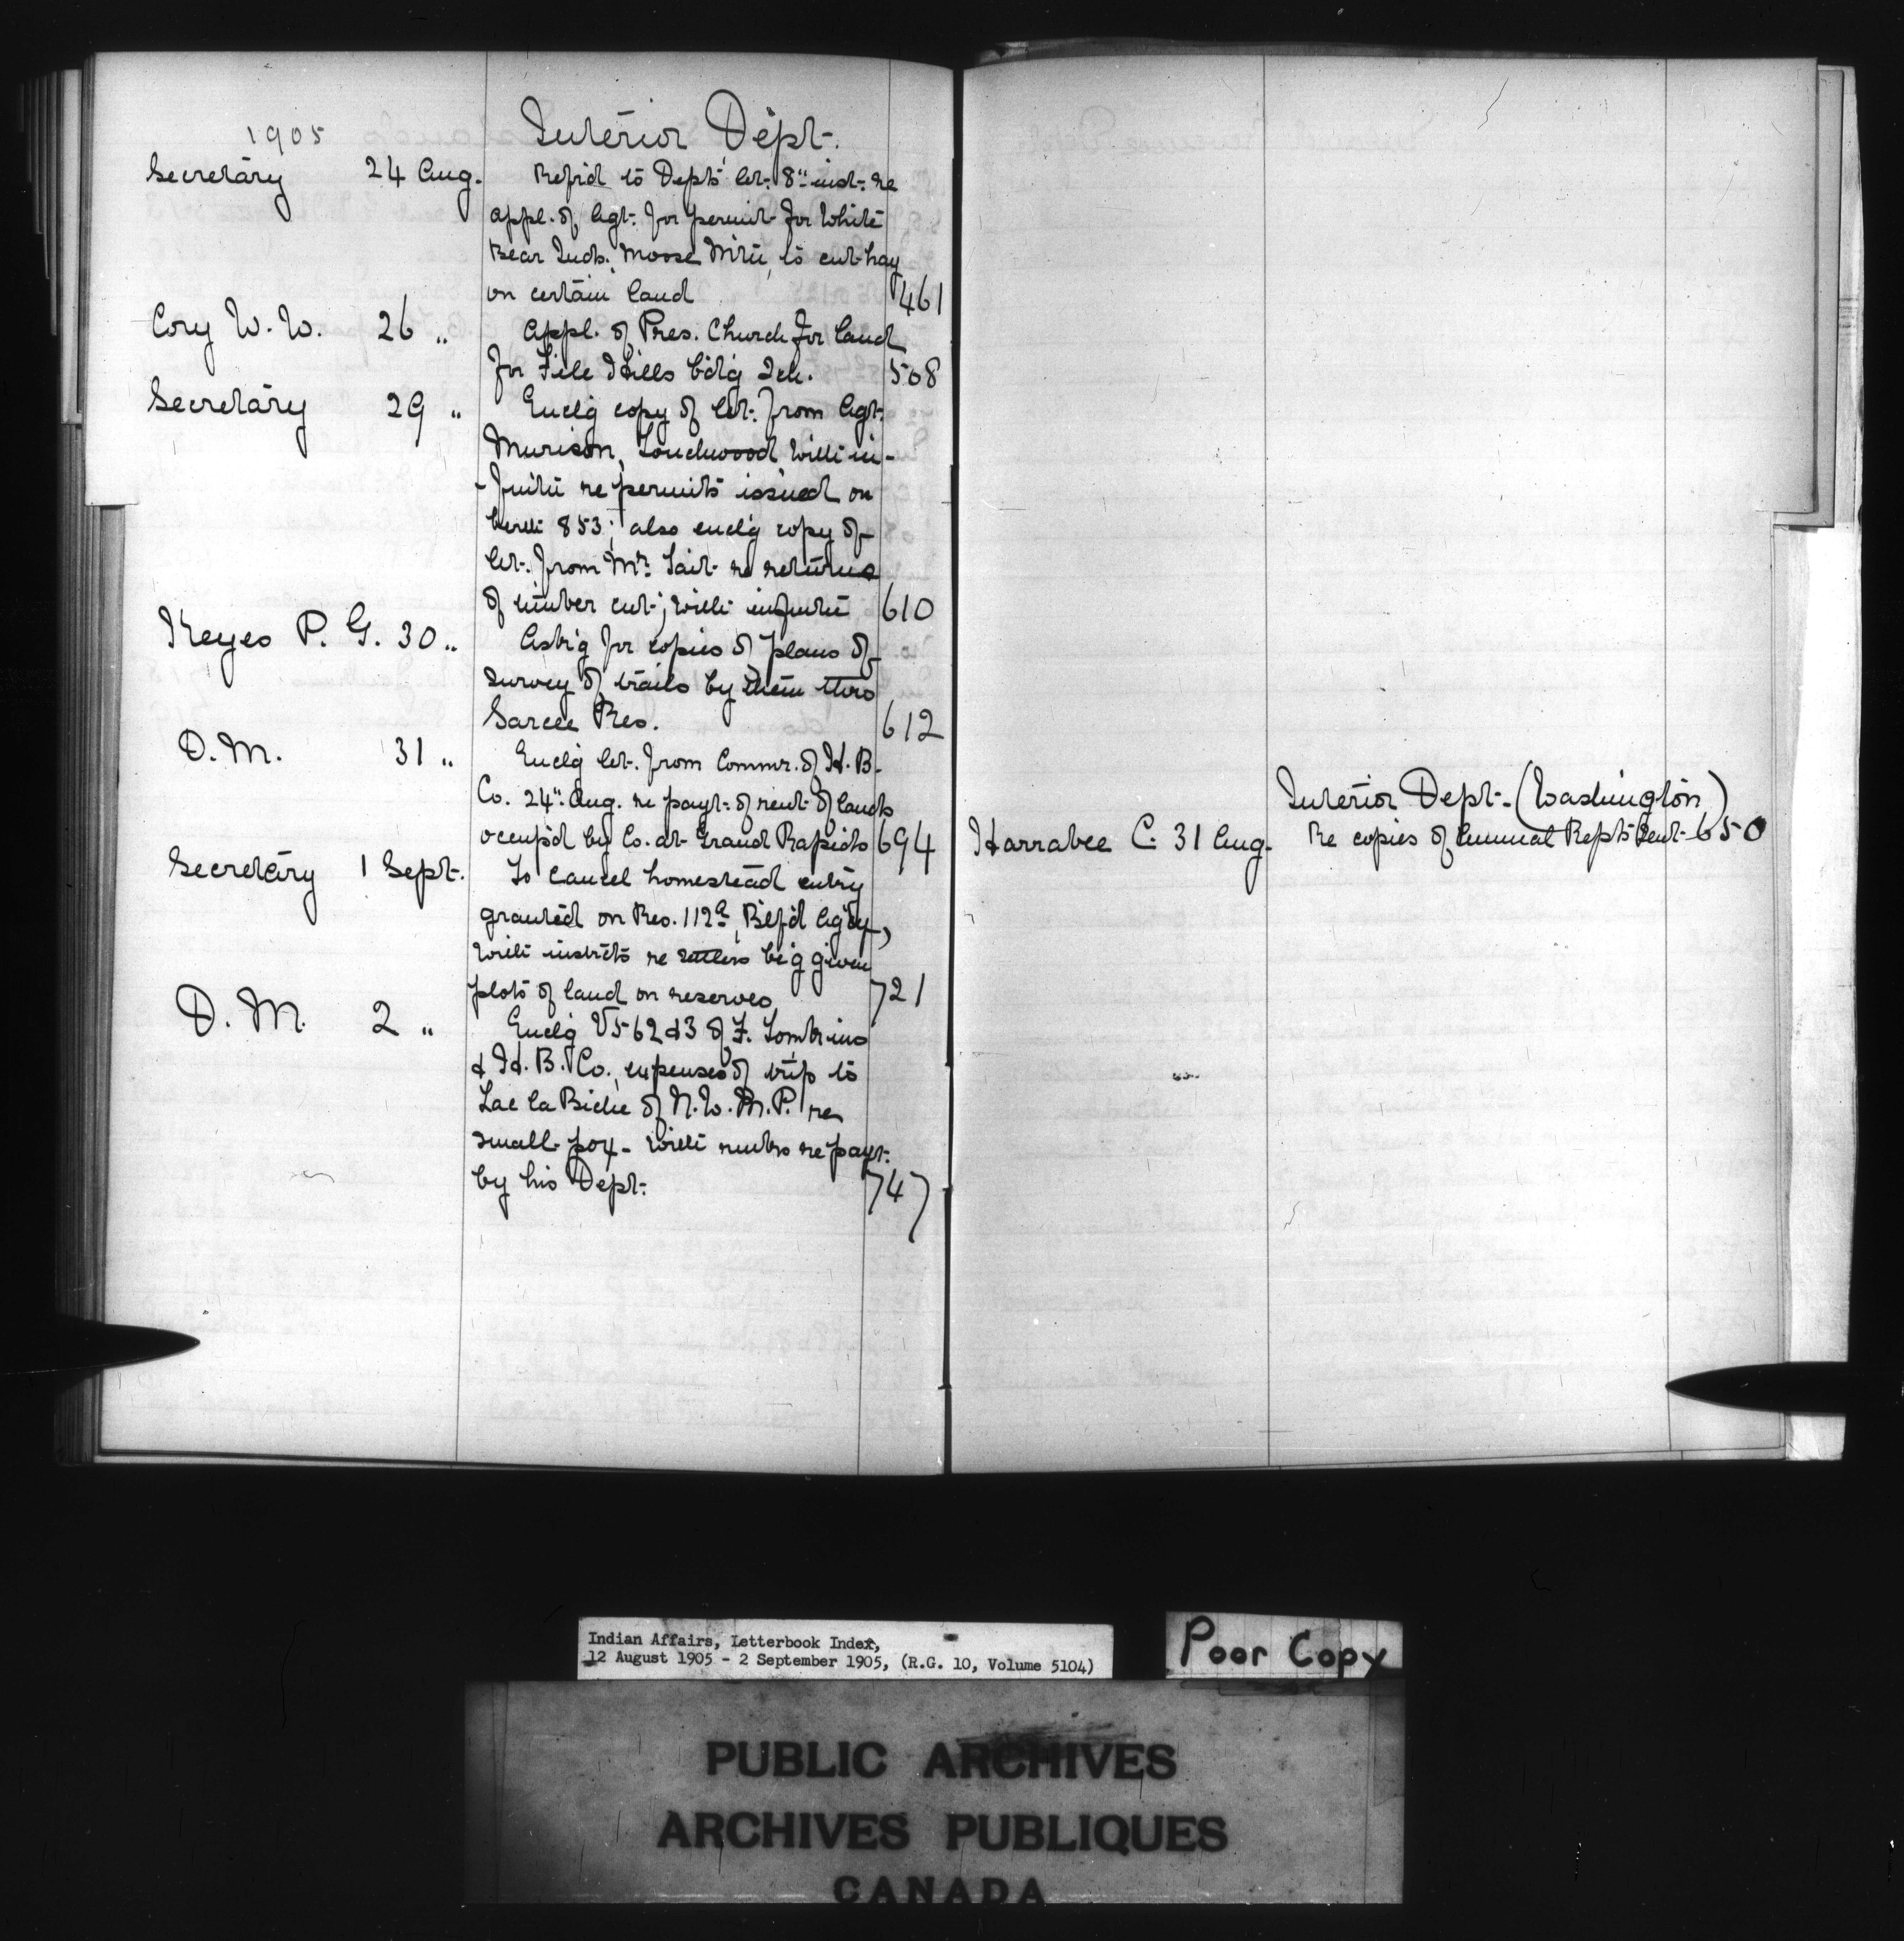 1905
Interior Dept.
Secretary 24 Aug. Ref'd to Dept's let. 8" inst. re
appl. of Agt. for permit for White
Bear Inds. Moose Mt'n, to cut hay
on certain land 461
Cory W. W. 26 " Appl. of Pres. Church for land
for File Hills b'd'g Sch. 508
Secretary 29 " Encl'g copy of let. from Agt.
Murison, Touchwood with in-
-fm't'n re permits issued on
berth 853; also encl'g copy of
let. from Mr. Tait re returns
of timber cut; with infm't'n 610
Keyes P. G. 30 " Ask'g for copies of plans of
survey of trails by them thro
Sarcee Res. 612
D. M. 31 " Encl'g let. from Commr. of H. B.
Co. 24" Aug. re payt. of rent of lands
occup'd by Co. at Grand Rapids 694
Secretary 1 Sept. To cancel homestead entry
granted on Res. 112a, Btlf'd Ag'cy,
with instr'ts re settlers be'g given
plots of land on reserves 721
D. M. 2 " Encl'g V 5-62 & 3 of F.
& H. B. Co., expenses of trip to
Lac la Biche of N. W. M. P. re
small-pox - with re payt.
by his Dept. 747
Interior Dept. (Washington)
Harrabee C. 31 Aug. Re copies of Annual Repts sent 650
Indian Affairs, Letterbook Index,
12 August 1905 - 2 September 1905, (R.G. 10, Volume 5104)
Poor Copy
PUBLIC ARCHIVES
ARCHIVES PUBLIQUES
CANADA